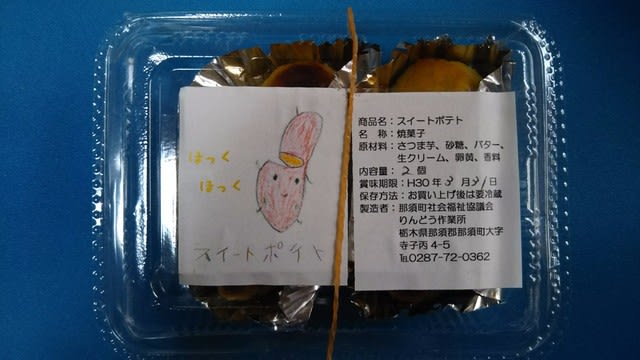 ほっく
ほっく
スイートポテト
商品名：スイートポテト
名　称：焼菓子
原材料：さつま芋、砂糖、バター、
生クリーム、卵黄、香料
内容量：2 個
賞味期限：H30 年 3 月 31 日
保存方法：お買い上げ後は要冷蔵
製造者：那須町社会福祉協議会
りんどう作業所
栃木県那須郡那須町大字
寺子丙 4-5
℡0287-72-0362